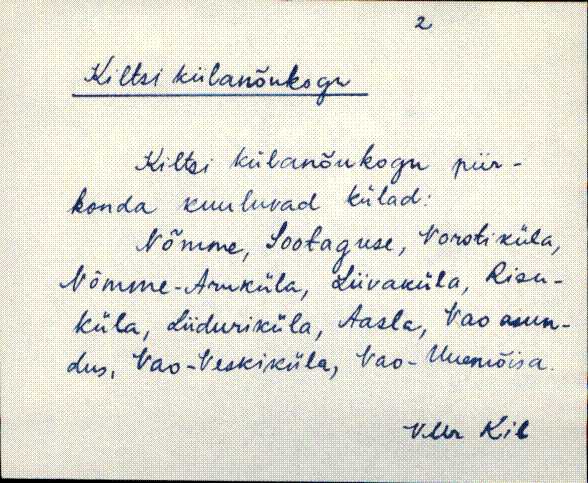 2
Kiltsi külanõukogu
Kiltsi külanõukogu piir-
konda kuuluvad külad:
Nõmme, Sootaguse, Vorstiküla,
Nõmme-Aruküla, Liivaküla, Risu-
küla, Liiduriküla, Aasla, Vao asun-
dus, Vao-Veskiküla, Vao-Uuemõisa.
VMr Kil